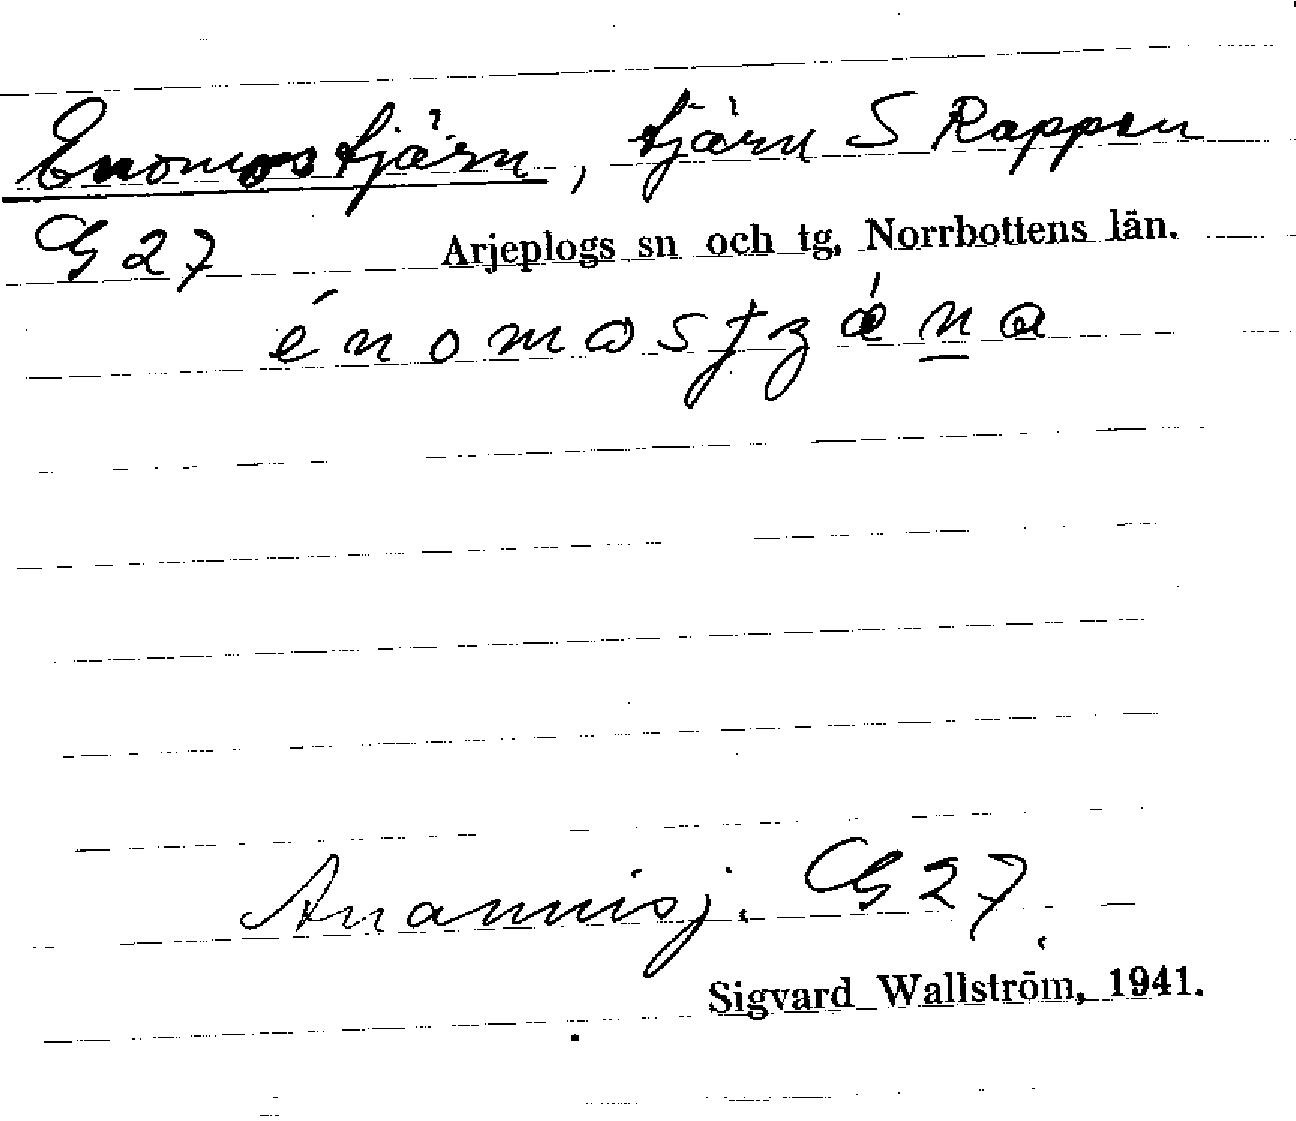 Enomostjärn, tjärn S Rappen
G 27 Arjeplogs sn och tg, Norrbottens län.
énomas
G 27
Sigvard Wallström, 1941.